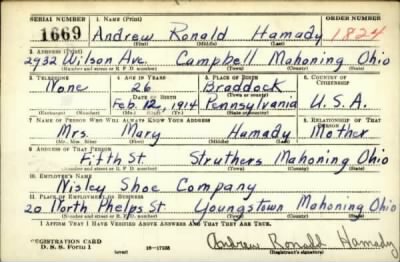 SERIAL NUMBER 1. NAME (Print) ORDER NUMBER
1669 Andrew Ronald Hamady 1824
(First) (Middle) (Last)
2. ADDRESS (Print)
2932 Wilson Ave. Campbell Mahoning Ohio
(Number and street or R. F. D. number) (Town) (County) (State)
3. TELEPHONE 4. AGE IN YEARS 5. PLACE OF BIRTH 6. COUNTRY OF CITIZENSHIP
None 26 Braddock
DATE OF BIRTH (Town or county)
Feb. 12, 1914 Pennsylvania U.S.A.
(Exchange) (Number) (Mo.) (Day) (Yr.) (State or country)
7. NAME OF PERSON WHO WILL ALWAYS KNOW YOUR ADDRESS 8. RELATIONSHIP OF THAT PERSON
Mrs. Mary Hamady Mother
(Mr., Mrs., Miss) (First) (Middle) (Last)
9. ADDRESS OF THAT PERSON
Fifth St. Struthers Mahoning Ohio
(Number and street or R. F. D. number) (Town) (County) (State)
10. EMPLOYER'S NAME
Nisley Shoe Company
11. PLACE OF EMPLOYMENT OR BUSINESS
20 North Phelps St Youngstown Mahoning Ohio
(Number and street or R. F. D. number) (Town) (County) (State)
I AFFIRM THAT I HAVE VERIFIED ABOVE ANSWERS AND THAT THEY ARE TRUE.
REGISTRATION CARD
D. S. S. Form 1 (over) 16—17105 Andrew Ronald Hamady
(Registrant's signature)